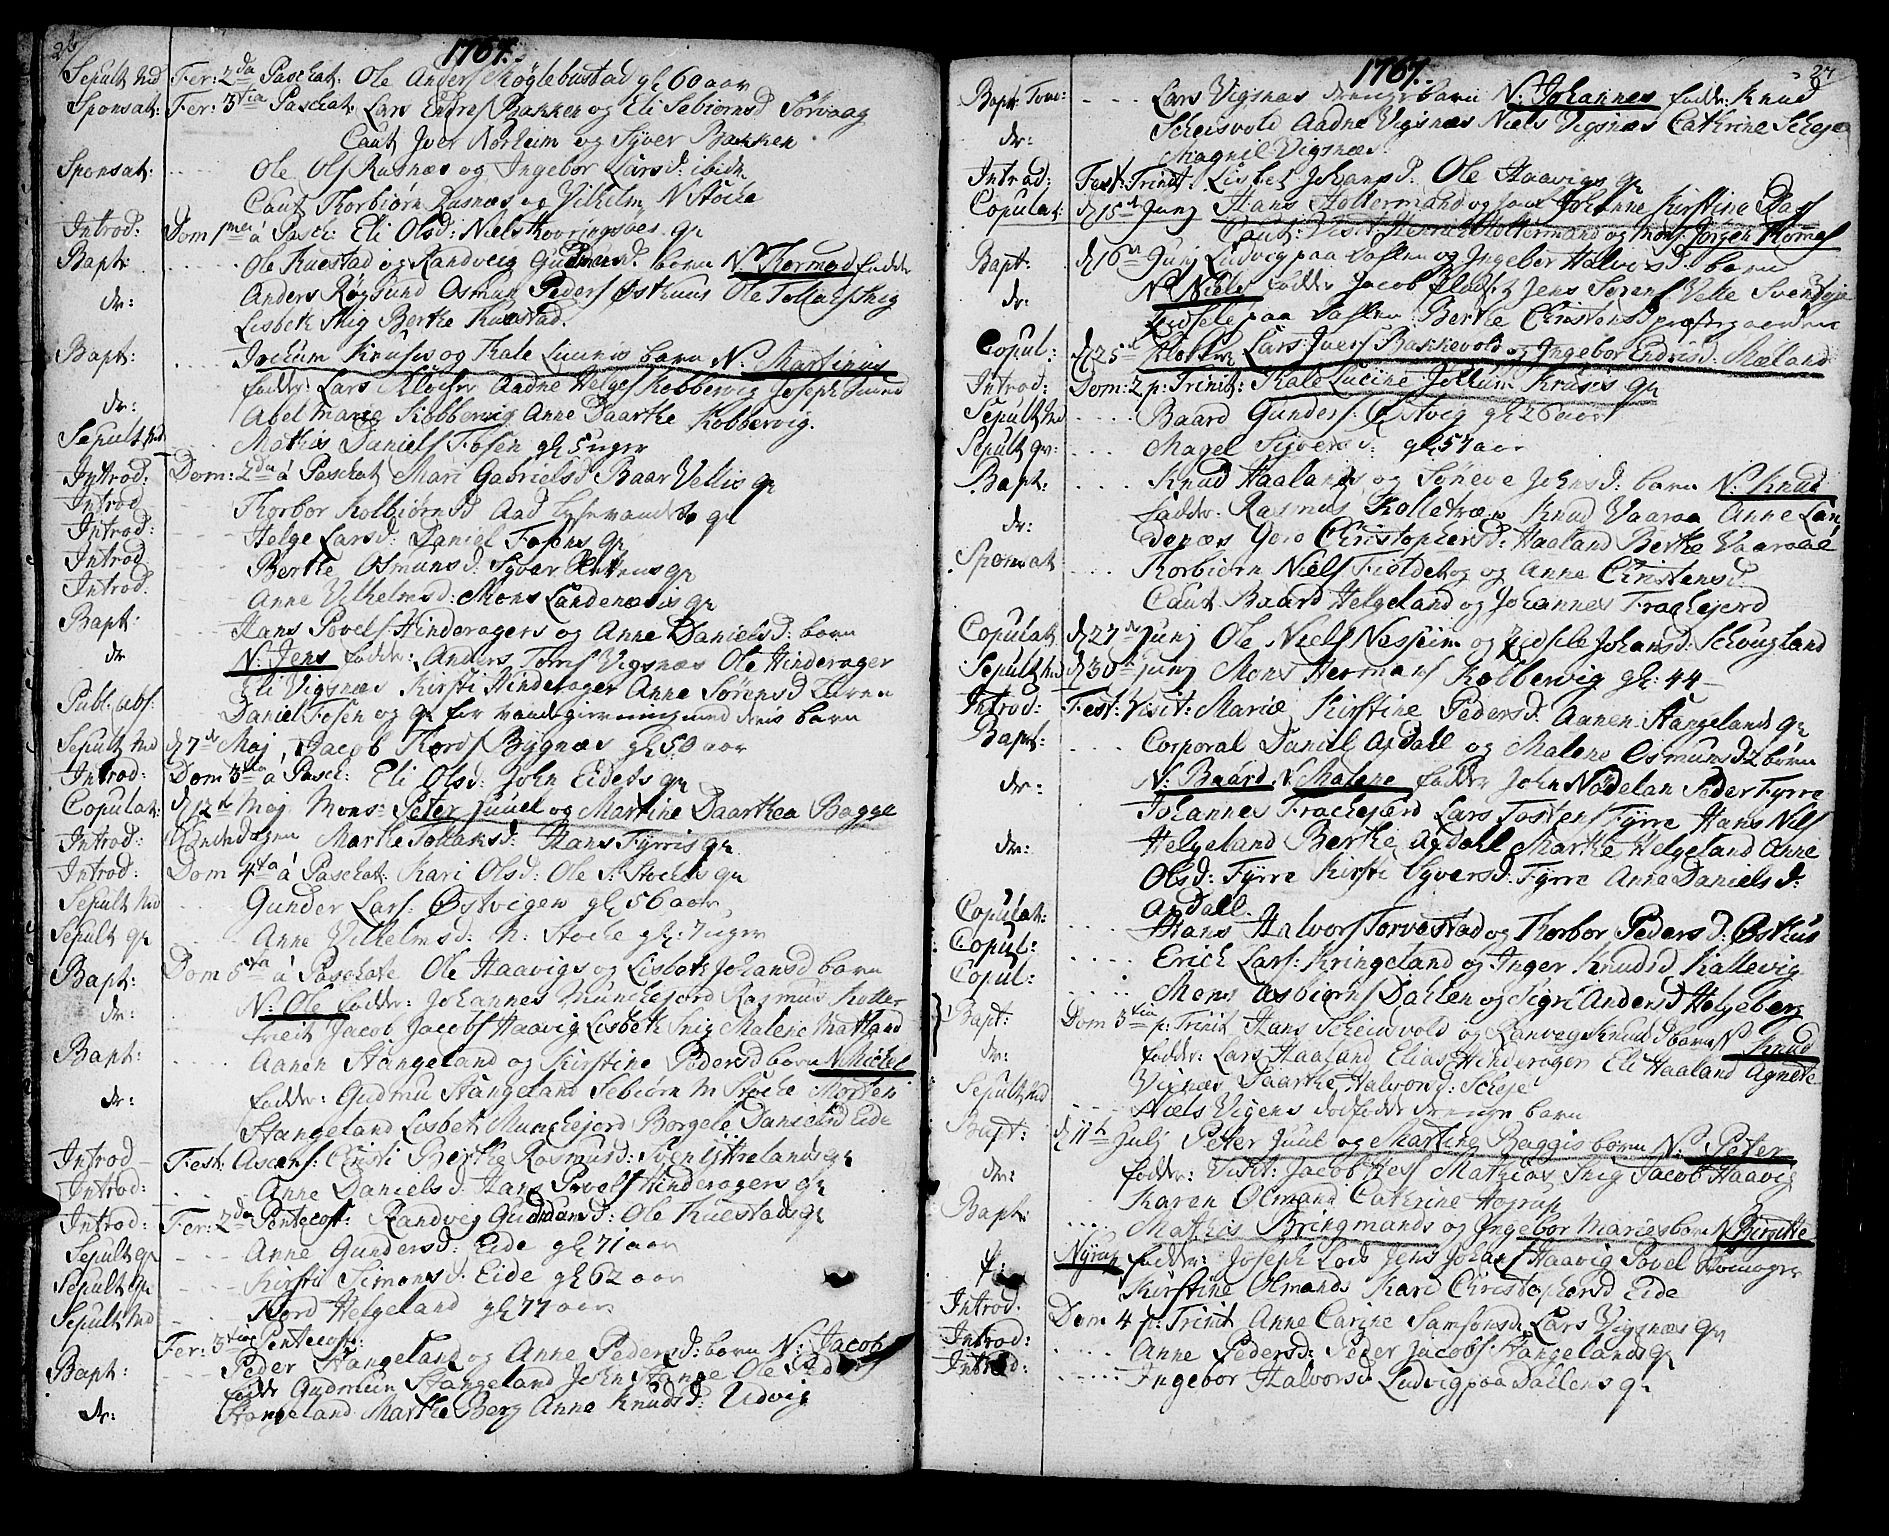 26
1767.
Sepult Md Fer: 2da Paschat: Ole Anders Røglebustad gl 60 aar
Sponsat: Fer: 3tia Paschat: Lars Endres Bakken og Eli Sebiørnsd Sørvaag
Caut Iver Norheim og Syver Bakken
Sponsat: Ole Ols Rasnæs og Ingebor Larsd: ibid:
Caut Thorbiørn Rasnæs og Vilhelm N Stoche
Introd: Dom 1ma á Pasch: Eli Olsd: Niels Kovringsøes qv
Bapt: Ole Ruestad og Randveig Gudmusd: barn N: Thormod fadder
dr: Anders Røgsund Osmun Peders Østhuus Ole Tollachs Snig
Lisbeth Snig Berthe Ruestad.
Bapt: Jochum Kruses og Thale Lucines barn N: Martinus
dr: fadder: Lars Klocher Aadne Helges Kobbervig Joseph Sund
Abel marie Kobbervig Anne Daarthe Kobbervig.
Sepult Md Mathis Daniels Fosen gl 5 uger
Introd: Dom: 2da á Paschat Mari Gabrielsd Baar Velles qv
Introd Thorbor Kolbiørnsd Aad Lysevandets qv
Introd: Helge Larsd: Daniel Fosens qv
Introd Berthe Osmunsd: Syver Rettens qv
Introd: Anne Vilhelmsd: Mons Landenæsis qv
Bapt: Hans Povels Hinderagers og Anne Danielsd: barn
dr N: Jens fadder: Anders Tores Vigsnæs Ole Hinderager
Eli Vigsnæs Kirsti Hinderager Anne Sørensd
Publ: abs: Daniel Fosen og qv for
Sepult Md d 7de Maj Jacob Thords Bygnæs gl 50 aar
Introd: Dom 3tia á Pasch: Eli Olsd: John Eidets qv
Copulat: d 12te Maj Mons: Peter Juuel og Martine Daarthea Bagge
Introd: Marthe Tollaksd: Hans Tyrris qv
Introd: Dom 4ta á Paschat: Kari Olsd: Ole S: Stoches qv
Sepult Md Gunder Lars: Østvigen gl 56 aar
Sepult qv Anne Vilhelmsd: N: Stoche gl: 7 uger
Bapt: Dom 5ta á Paschate Ole Haavigs og Lisbeth Johansd barn
dr: N: Ole fadder: Johannes Munchejord Rasmus Kolle-
treit Jacob Jacobs Haavig Lisbeth Snig Malene Matland
Bapt: Aanen Stangeland og Kirstine Pedersd barn N Michel
dr: fadder: Gudmu Stangeland Sebiørn M Stoche Morten
Stangeland Lisbeth Munchejord Borgele Danielsd Eide
Introd Fest: Ascens: Christi Berthe Rasmusd: Sven Ytrelands qv
Introd: Anne Danielsd: Hans Povels Hinderagers qv
Introd: Fer: 2da Pentecost: Randveg Gudmunsd: Ole Ruestads qv
Sepult qv Anne Gundersd: Eide gl 71 aar
Sepult qv Kirsti Simonsd: Eide gl 62 aar
Sepult Md Nord Helgeland gl 77 aar
Fer: 3tia Pentecost:
Bapt: Peder Stangeland og Anne Pedersd: barn N: Jacob
fadder Gudmun Stangeland John Stange Ole
dr: Stangeland Marthe Berg Anne Knudsd: Udvig
27
1767.
Bapt: Lars Vigsnæs drengebarn N: Johannes fadder: Knud
dr: Scheisvold Aadne Vigsnæs Niels Vigsnæs Cathrine Scheje
Magnil Vigsnæs
Introd: Fest: Trinit: Lisbet Johansd: Ole Haavigs qv
Copulat: d 15de Junj Hans Holtermand og Johanne Kirstine Das
Caut: Visit: Henric Holtermand og Mons: Jørgen Thomes
Bapt: d 16de Junj Ludvig paa Dahlen og Ingebor Halvorsd: barn
dr: N: Niels fadder Jacob Flodet Jens Sørens Velle Svend Eje
Zidsele paa Dahlen Berthe Christensd præstegaarden
Copul: d 25de Klokker Lars Ivers Bakkevold og Ingebor Endresd: Mæland
Introd: Dom: 2 p: Trinit: Thale Lucine Jochum Kruses qv
Sepult Md Baard Gunders: Østvig gl 26 aar
Sepult qv: Magel Syversd: gl 57 aar
Bapt: Knud Haalands og Søneve Johnsd: barn N: Knud
dr: fadder: Rasmus Kolletræn Knud Vaaraa Anne Lan-
denæs Goro Christophersd: Haaland Berthe Vaaraae
Sponsat Thorbiørn Niels Fioldet og Anne Christensd
Caut Baard Helgeland og Johannes Frachejerd
Copulat d 27de Junj Ole Niels Nesheim og Zidsele Johansd: Schougland
Sepult Md d 30te Junj Mons Hermans Kolbervig gl: 44
Introd: Fest: Visit: Mariæ Kirstine Pedersd: Aanen Stangelands qv
Bapt: Corporal Daniel Agdall og Malene Osmunsd: 2 børn
dr: N: Baard N Malene fadder John Nødelan Peder Tyrre
Johannes Frachejerd Lars Tosten Tyrre Hans Nils
dr: Helgeland Berthe Agdall Marthe Helgeland Anne
Olsd: Tyrre Kirsti Syversd: Tyrre Anne Danielsd:
Agdall
Copulat: Hans Halvors Torvestad og Thorbor Pedersd: Østhuus
Copul: Erich Lars: Kringeland og Inger Knudsd Kallevig
Copul: Mons Asbiørns Dahlen og Sigri Andersd Helgeberg
Bapt: Dom 3tia p: Trinit Hans Scheisvold og Ranveg Knudsd barn N Knud
dr: fadder: Lars Haaland Elias Hinderager Eli Haaland Agnete
Vignæs Daarthe Halvorsd: Scheje
Sepult Md Niels Vigens dødfødde drenge barn
Bapt: d 11te Julj Peter Juul og Martine Baggis barn N: Peter
dr: fadder: Visit: Jacob Kes Mathias Snig Jacob Haavig
Karen Olmand Catrine
Bapt: Mathis Bringmands og Ingebor Maries barn N Birgitte
Nyrup fadder: Joseph Lod Jens Johans Haavig Povel
Kirstine Olmands Kari Christophersd Eide
Introd: Dom 4 p: Trinit Anne Carine Samsonsd: Lars Vigsnæs qv
Introd: Anne Pedersd: Peder Jacobs: Stangelands qv
Introd: Ingebor Halvorsd Ludvig paa Dallens qv